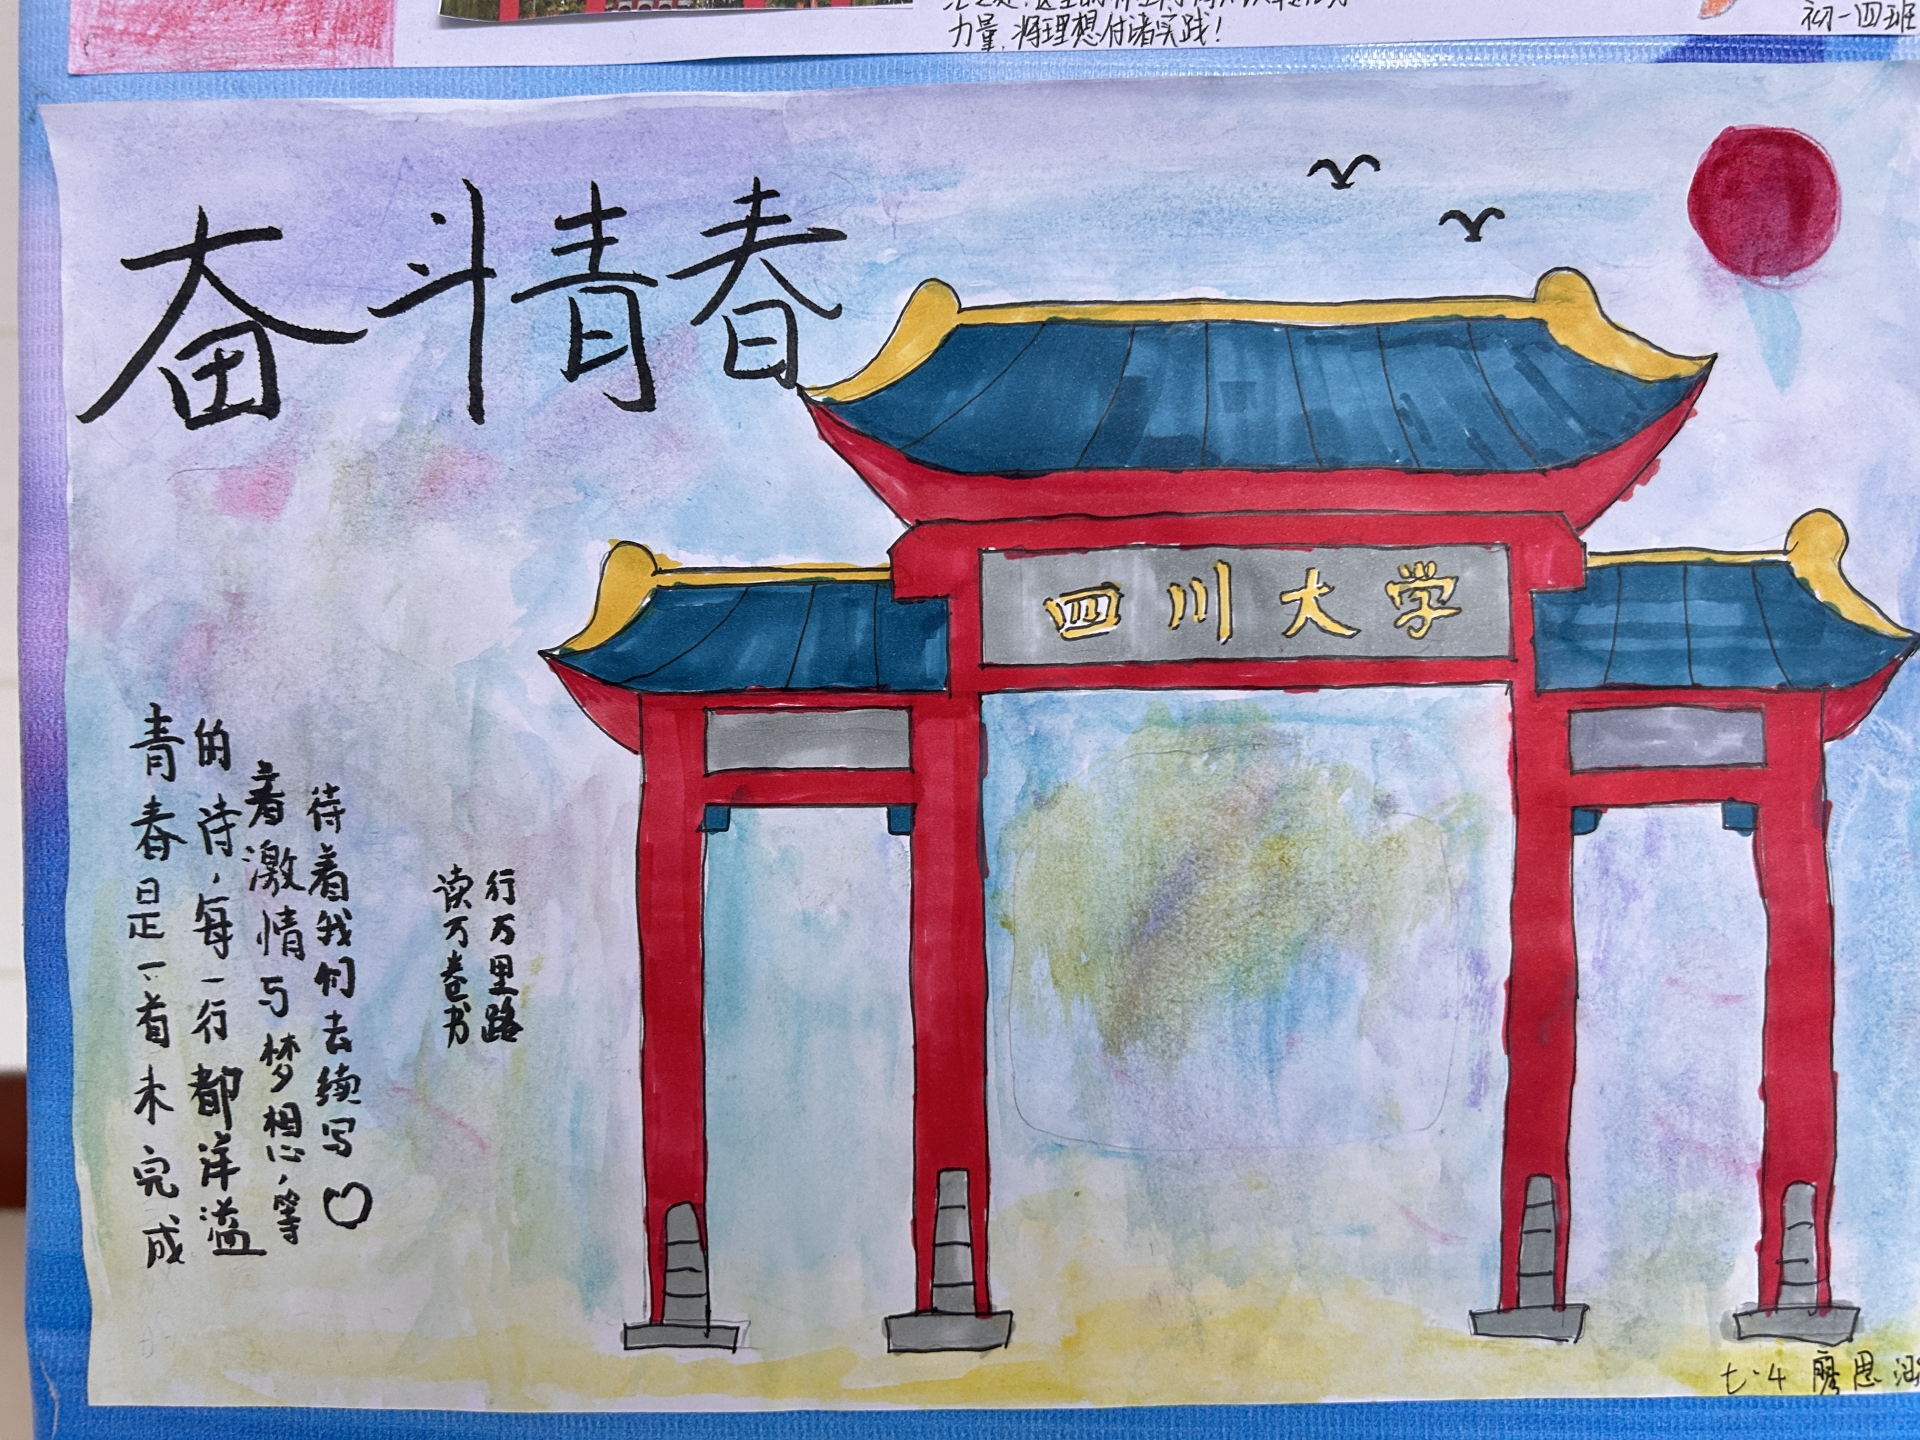 力量,将理想付诸实践!
初一四班
奋斗青春
四川大学
青春是一首未完成
的诗,每一行都洋溢
着激情与梦想,等
待着我们去续写
读万卷书
行万里路
七·4 廖思涵